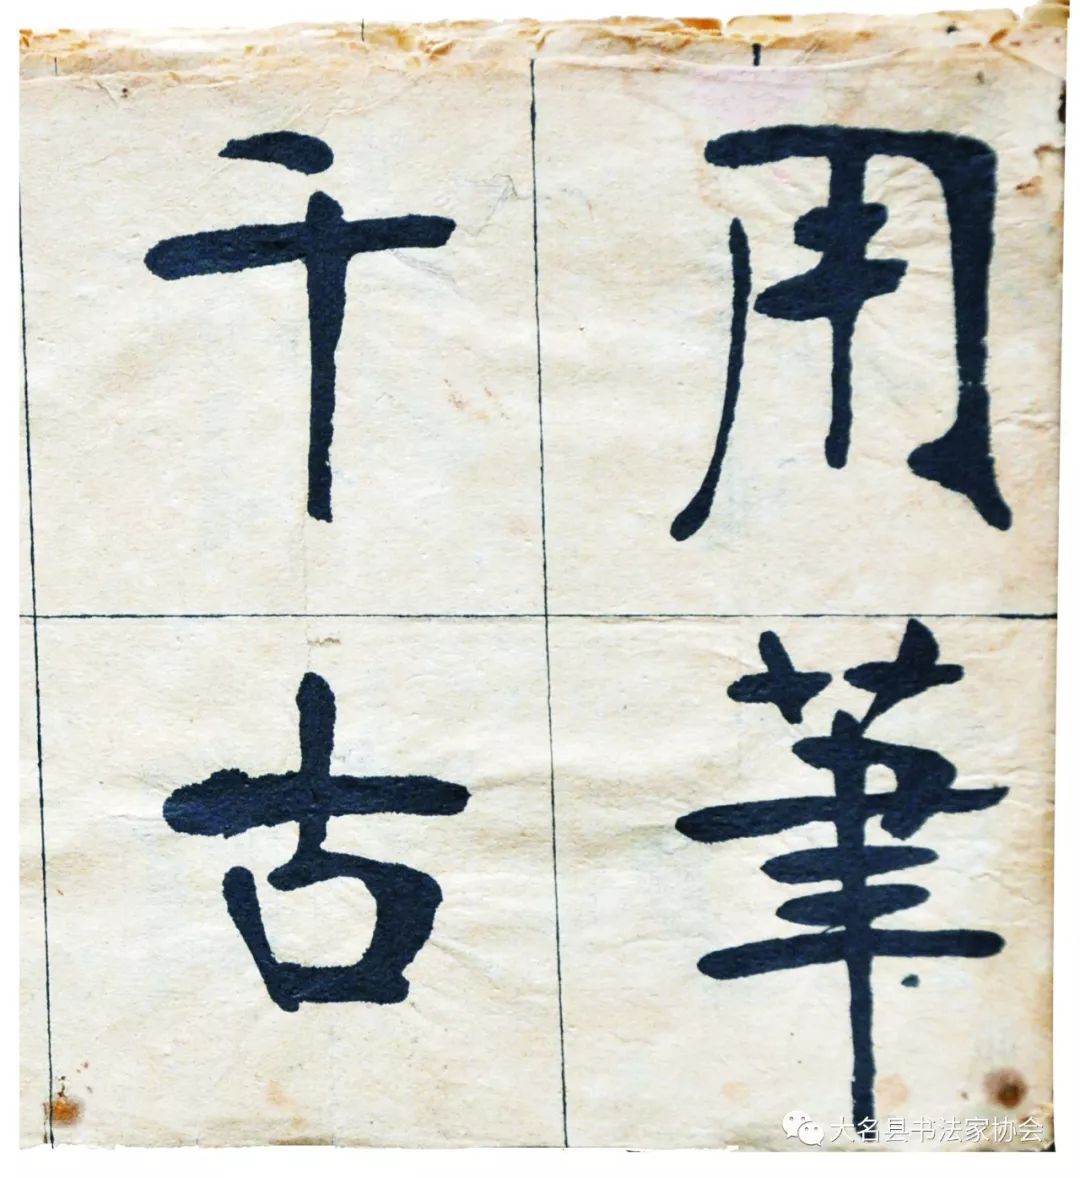 用筆
千古
大名县书法家协会